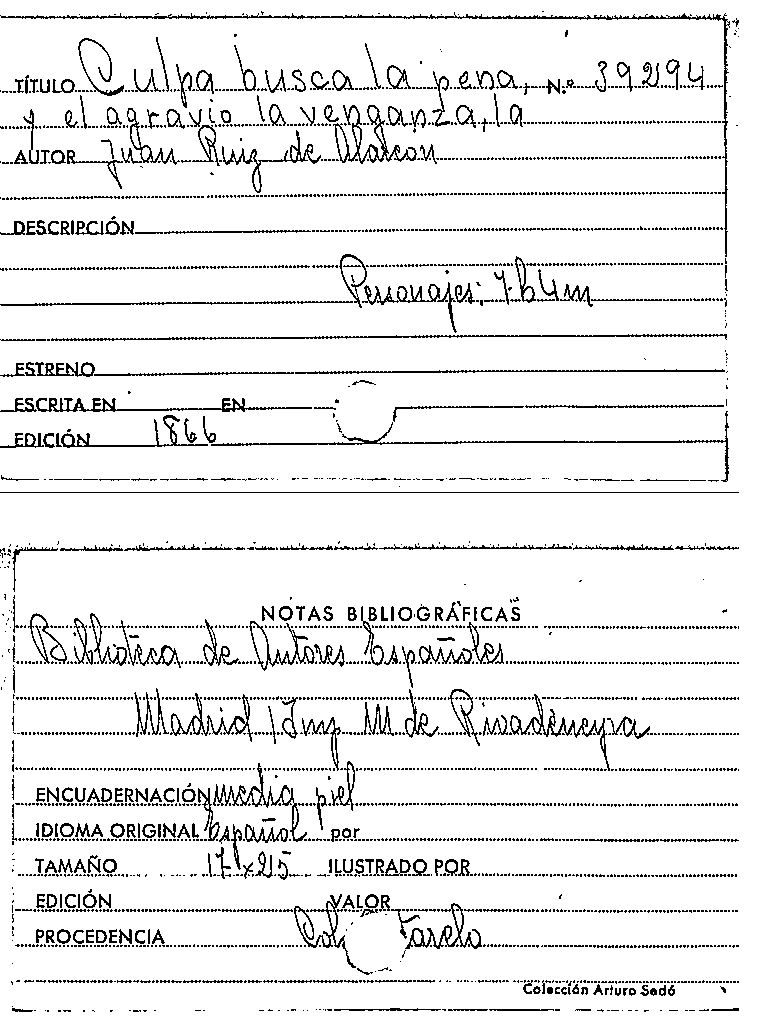 TÍTULO Culpa busca la pena, N.º 39294
y el agravio la venganza, la
AUTOR Juan Ruiz de Alarcon
DESCRIPCIÓN
Personajes: 7h4m
ESTRENO
ESCRITA EN EN
EDICIÓN 1866
NOTAS BIBLIOGRÁFICAS
Biblioteca de Autores Españoles
Madrid / Imp M. de Rivadeneyra
ENCUADERNACIÓN media piel
IDIOMA ORIGINAL Español por
TAMAÑO 17x25 ILUSTRADO POR
EDICIÓN VALOR
PROCEDENCIA
Colección Arturo Sedó